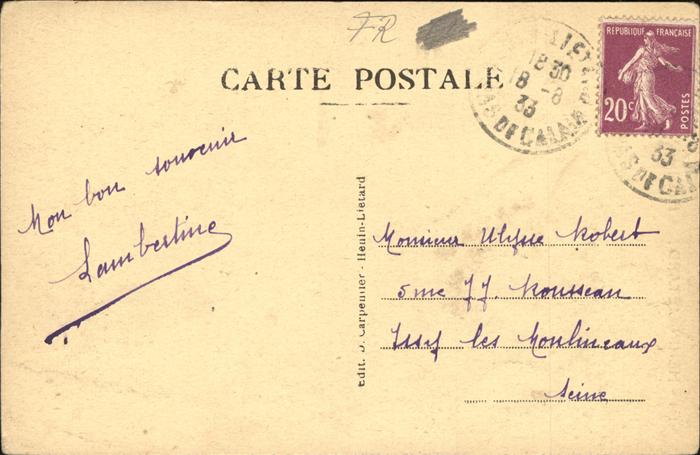 FR
CARTE POSTALE
REPUBLIQUE FRANÇAISE
20c
POSTES
18 30
18 -8
33
PAS DE CALAIS
33
PAS DE CALAIS
Mon bon souvenir
Lambertine
Edit. D. Carpentier - Henin-Liétard
Monsieur Ulysse Robert
5 me J J. Rousseau
Issy les Moulineaux
Seine